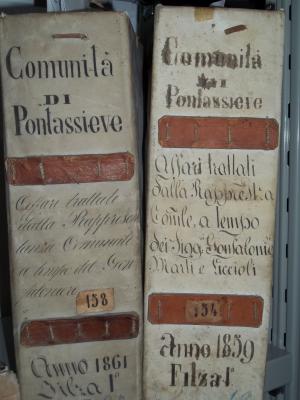 Comunità
DI
Pontassieve
Affari trattati
dalla Rappresen
tanza Comunale
a tempo del Gon
faloniere
158
Anno 1861
Filza 1ª
Comunità
DI
Pontassieve
Affari trattati
dalla Rappres.ª
Com.le, a Tempo
dei Sigg.
Marti e Piccioli
154
Anno 1859
Filza 1ª